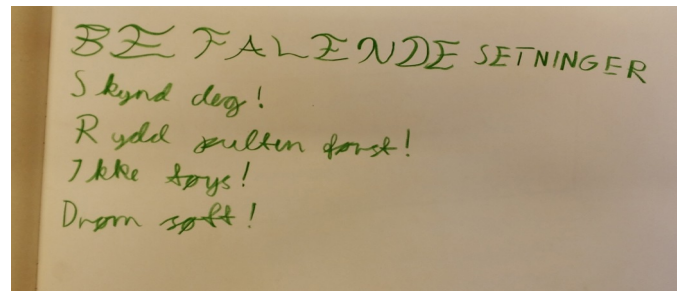 BEFALENDE SETNINGER
Skynd deg!
Rydd pulten først!
Ikke tøys!
Drøm søtt!